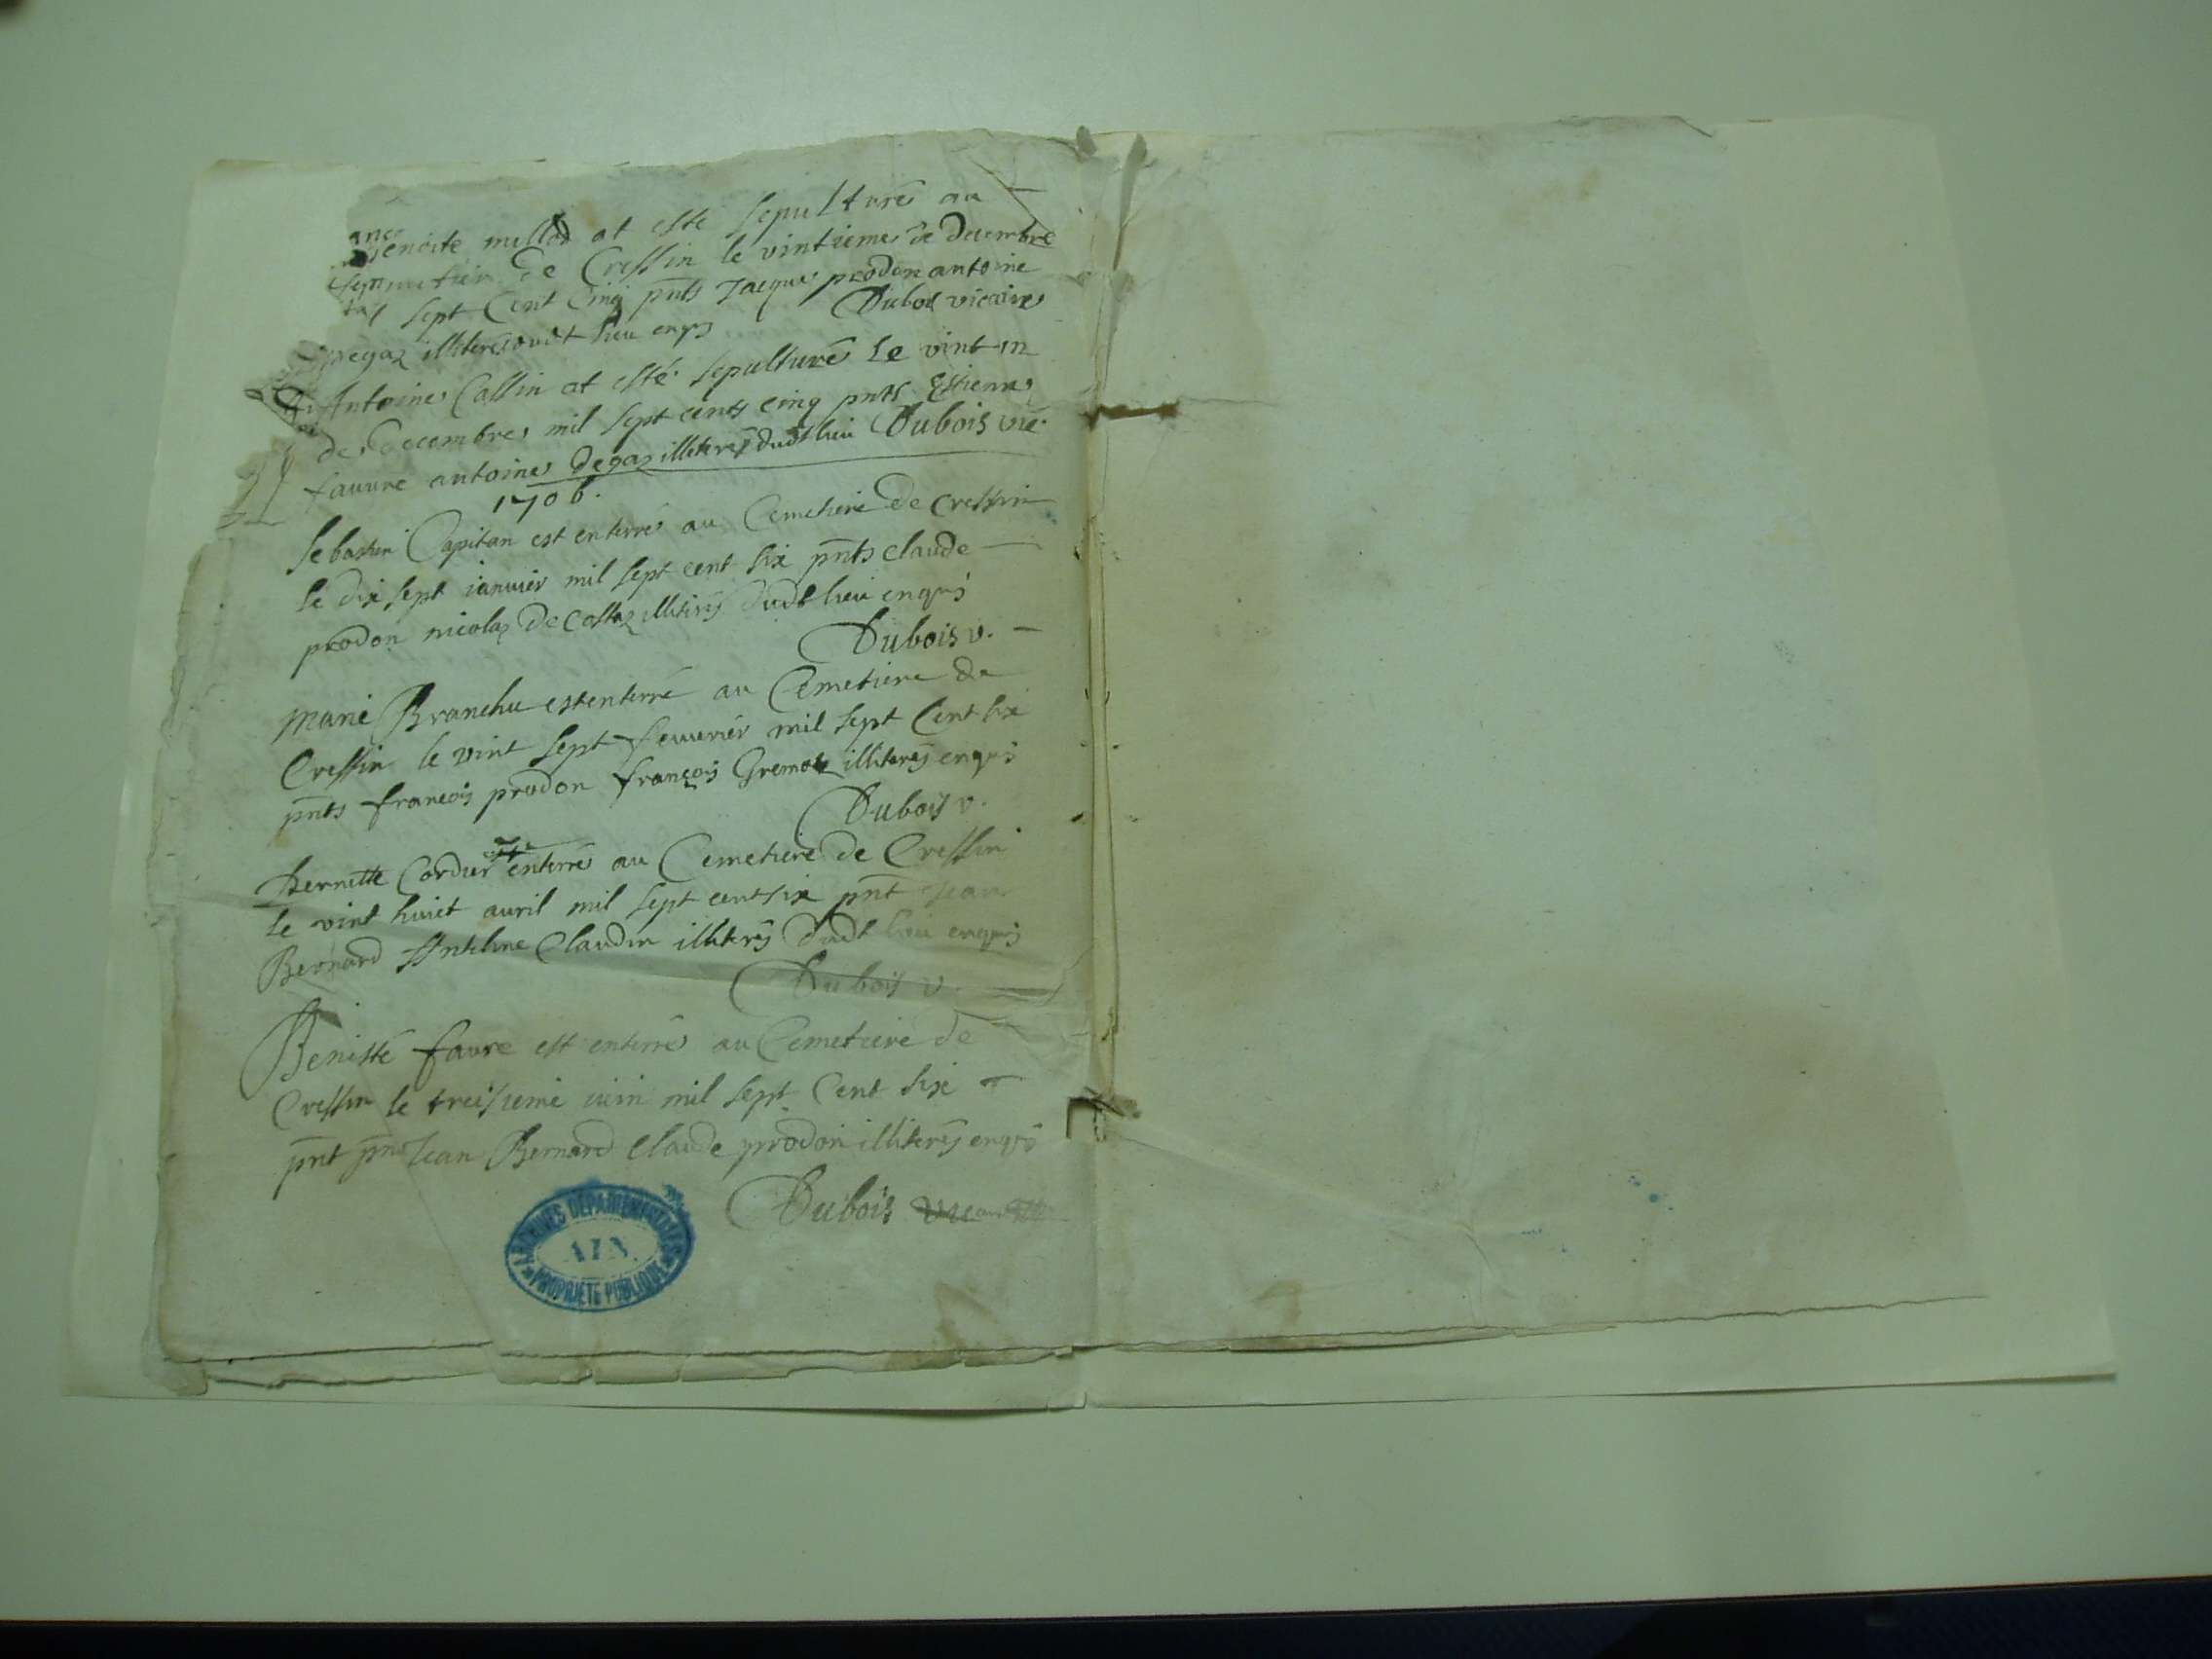 benoite millod at esté sepulturé au
de Cressin le vintieme de decembre
sept Cent Cinq pnts Jacque prodon antoine
degaz illiterés dudt lieu enqs Dubois vicaire
Antoine Cassin at esté sepulturé le vint un
de decembre mil sept cents cinq pnts Estienne
fauure antoine degaz illiterés dudt lieu Dubois vic.
1706.
Sebastien Capitan est enterré au Cemetiere de Cressin
le dix sept ianuier mil sept cent six pnts claude
prodon nicolas De Costaz illiterés dudt lieu enquis
Dubois v.
Marie Branchu est enterré au Cemetiere de
Cressin le vint sept feuurier mil sept Cent six
pnts francois prodon françois Gremoz illiterés enquis
Dubois v.
Bernette Cordier enterré au Cemetiere de Cressin
le vint huict auril mil sept cent six pnt Jean
Bernard Antelme Claudin illiterés dudt lieu enquis
Dubois v.
Benisté faure est enterré au Cemetiere de
Cressin le treisieme iuin mil sept Cent six
pnt pnts Jean Bernard Claude prodon illiterés enquis
Dubois
ARCHIVES DÉPARTEMENTALES
AIN
PROPRIÉTÉ PUBLIQUE